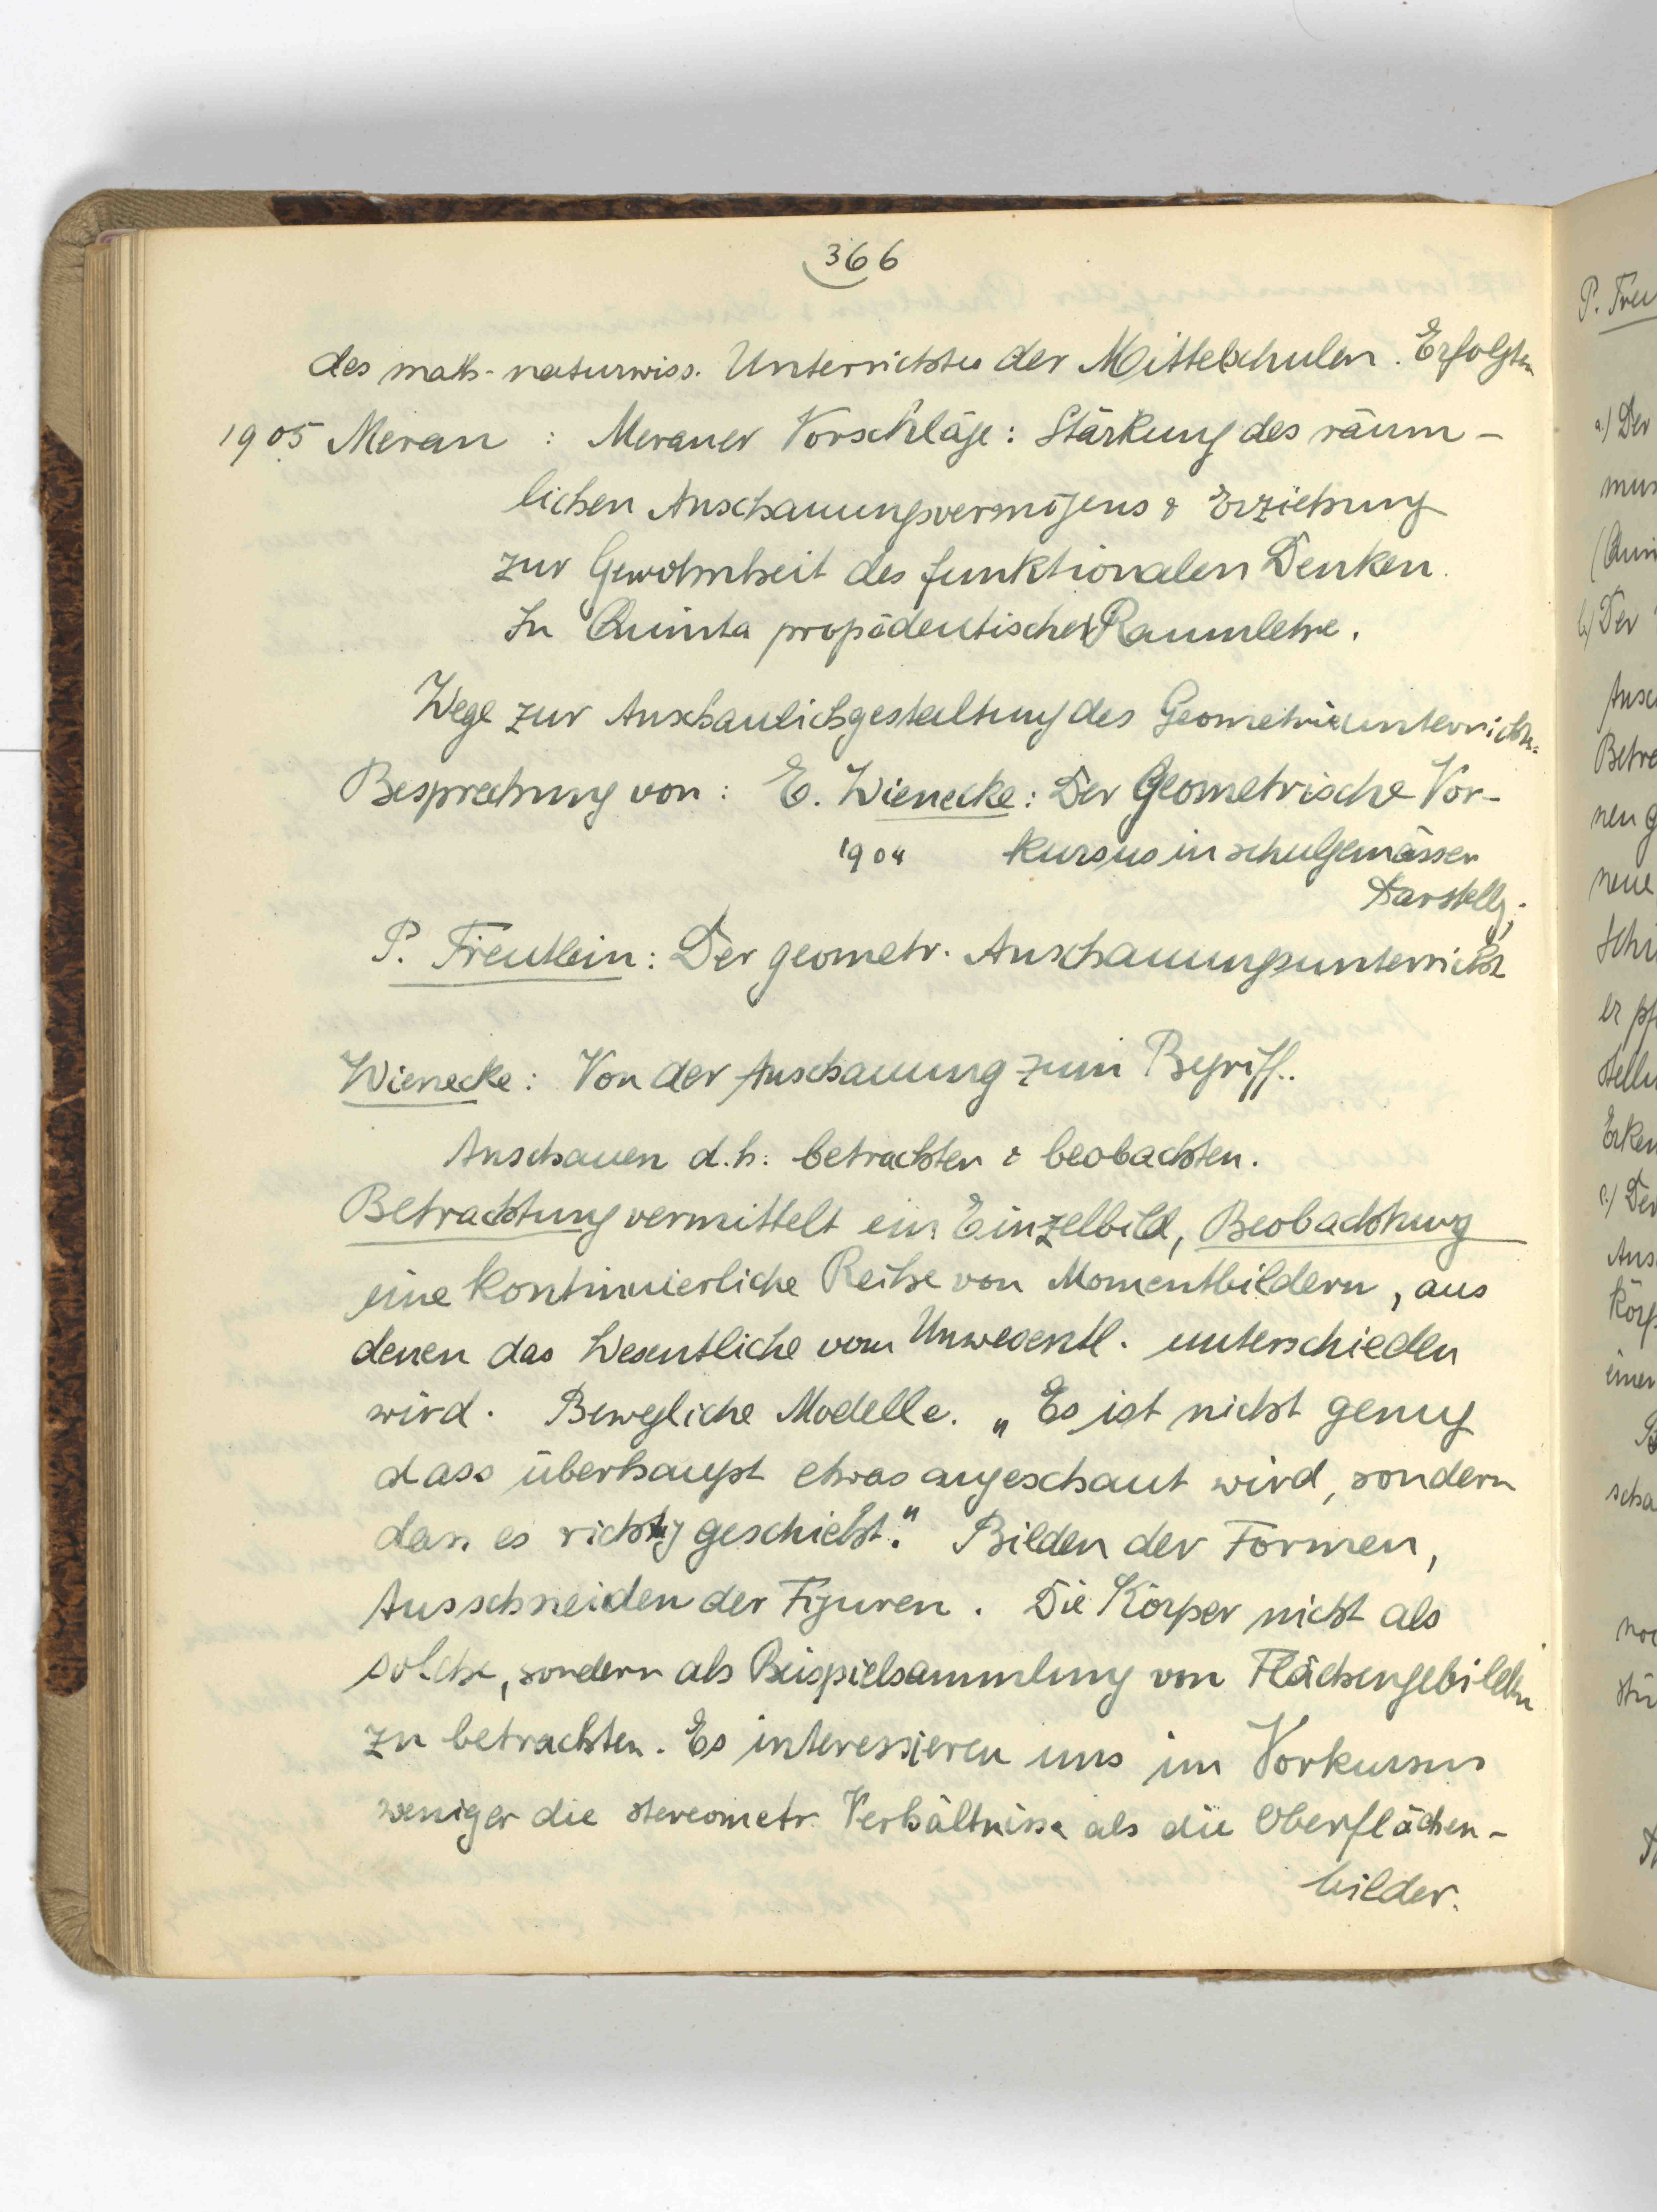 366
des math-naturwiss. Unterrichtes der Mittelschulen. Erfolgten
1905 Meran : Meraner Vorschläge: Stärkung des räum-
lichen Anschauungsvermögens & Erziehung
zur Gewohnheit des funktionalen Denken.
In Quinta propädeutische Raumlehre.
Wege zur Anschaulichgestaltung des Geometrieunterrichts.
Besprechung von: E. Wienecke: Der Geometrische Vor-
1904 kursus in schulgemässer
Darstellg.
P. Treutlein: Der geometr. Anschauungsunterricht
Wienecke: Von der Anschauung zum Begriff.
Anschauen d.h: betrachten & beobachten.
Betrachtung vermittelt ein Einzelbild, Beobachtung
eine kontinuierliche Reihe von Momentbildern, aus
denen das Wesentliche vom Unwesentl. unterschieden
wird. Bewegliche Modelle. „Es ist nicht genug
dass überhaupt etwas angeschaut wird, sondern
dass es richtig geschieht." Bilden der Formen,
Ausschneiden der Figuren. Die Körper nicht als
solche, sondern als Beispielsammlung von Flächengebilden
zu betrachten. Es interessieren uns im Vorkursus
weniger die stereometr. Verhältnisse als die Oberflächen-
bilder.
a.) Der
b.) Der
Betre
c.) Der
einer